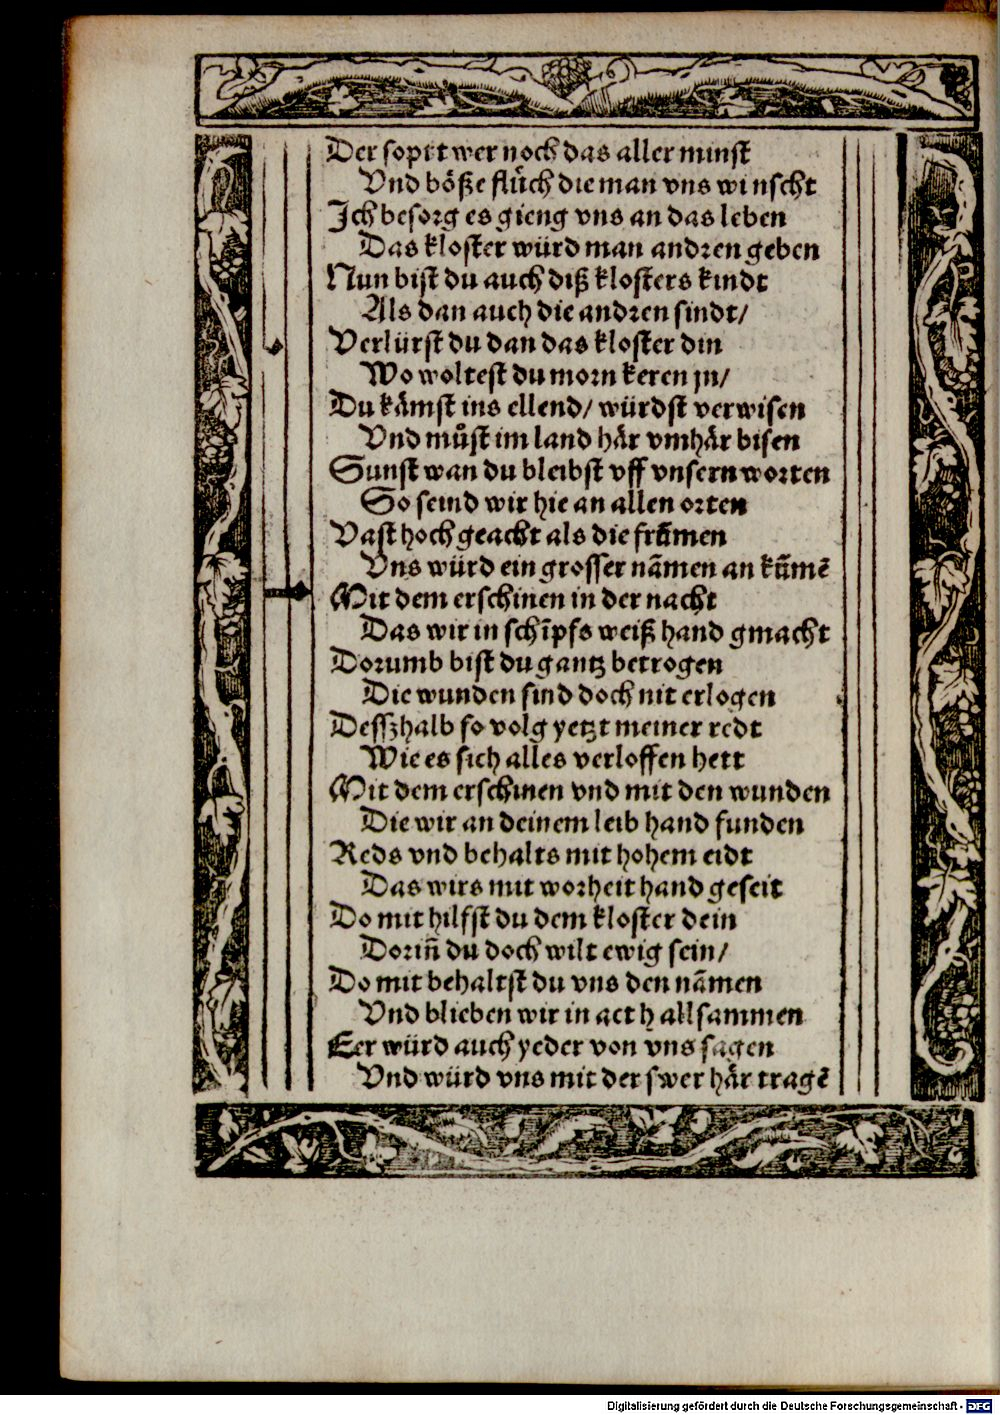 Der sopt t wer noch das aller minst
Vnd böße flüch die man vns winscht
Jch besorg es gieng vns an das leben
Das kloster würd man andren geben
Nun bist du auch diß klosters kindt
Als dan auch die andren sindt/
Verlürst du dan das kloster din
Wo woltest du morn keren jn/
Du kämst ins ellend/ würdst verwisen
Vnd můst im land här vmhär bisen
Sunst wan du bleibst vff vnsern worten
So seind wir hie an allen orten
Vast hoch geacht als die frūmen
Vns würd ein grosser nāmen an kūmē
Mit dem erschinen in der nacht
Das wir in schīpfs weiß hand gmacht
Dorumb bist du gantz betrogen
Die wunden sind doch nit erlogen
Desszhalb so volg yetzt meiner redt
Wie es sich alles verloffen hett
Mit dem erschinen vnd mit den wunden
Die wir an deinem leib hand funden
Reds vnd behalts mit hohem eidt
Das wirs mit worheit hand geseit
Do mit hilfst du dem kloster dein
Dorin̄ du doch wilt ewig sein/
Do mit behaltst du vns den nāmen
Vnd blieben wir in acth allsammen
Eer würd auch yeder von vns sagen
Vnd würd vns mit der swer här tragē
Digitalisierung gefördert durch die Deutsche Forschungsgemeinschaft - DFG